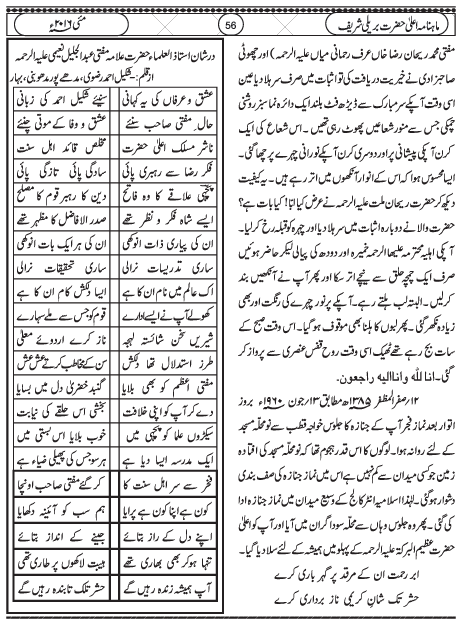 ماہنامہ اعلیٰ حضرت بریلی شریف
56
مئی ۲۰۱۶ء
مفتی محمد ریحان رضا خاں عرف رحمانی میاں علیہ الرحمہ) اور چھوٹی
صاحبزادی نے خیریت دریافت کی تو اثبات میں صرف سر ہلا دیا عین
اسی وقت آپ کے سر مبارک سے ڈیڑھ فٹ بلند ایک دائرہ نما سبز روشنی
چمکی جس سے منور شعاعیں پھوٹ رہی تھیں۔ اس شعاع کی ایک
کرن آپکی پیشانی پر اور دوسری کرن آپکے نورانی چہرے پر چھا گئی۔
ایسا محسوس ہوا کہ اس کے انوار آنکھوں میں اتر رہے ہیں۔ یہ کیفیت
دیکھ کر حضرت ریحان ملت علیہ الرحمہ نے عرض کیا ابا! کیا بات ہے؟
حضرت والا نے دوبارہ اثبات میں سر ہلا دیا اور چہرہ کو قبلہ رخ کر لیا۔
آپکی اہلیہ محترمہ علیہا الرحمہ خمیرہ اور دودھ کی پیالی لیکر حاضر ہوئیں
صرف ایک چمچہ حلق سے نیچے اتر سکا اور پھر آپ نے آنکھیں بند
کر لیں۔ البتہ لب ہلتے رہے۔ آپکے پر نور چہرے کی رنگت اور بھی
زیادہ نکھر گئی۔ پھر لبوں کا ہلنا بھی موقوف ہو گیا۔ اس وقت صبح کے
سات بج رہے تھے ٹھیک اسی وقت روح قفس عنصری سے پرواز کر
گئی۔ انا للہ وانا الیہ راجعون۔
۱۲/صفر المظفر ۱۳۸۵ھ مطابق ۱۳/جون ۱۹۶۰ء بروز
اتوار بعد نماز فجر آپ کے جنازہ کا جلوس خواجہ قطب سے نومحلہ مسجد
کے لئے روانہ ہوا۔ لوگوں کا اس قدر ہجوم تھا کہ نومحلہ مسجد کی افتادہ
زمین جو کسی میدان سے کم نہیں ہے اس میں نماز جنازہ کی صف بندی
دشوار ہو گئی۔ لہٰذا اسلامیہ انٹر کالج کے وسیع میدان میں نماز جنازہ ادا
کی گئی۔ پھر وہ جلوس وہاں سے محلہ سوداگران میں آیا اور آپ کو اعلیٰ
حضرت عظیم البرکۃ علیہ الرحمہ کے پہلو میں ہمیشہ کے لئے سلا دیا گیا۔
ابر رحمت ان کے مرقد پر گہر باری کرے
حشر تک شان کریمی ناز برداری کرے
در شان استاذ العلماء حضرت علامہ مفتی عبد الجلیل نعیمی علیہ الرحمہ
از قلم:- شکیل احمد رضوی، مدھے پور مدھوبنی، بہار
عشق و عرفاں کی یہ کہانی سنیئے شکیل احمد کی زبانی
حال مفتی صاحب سنئے عشق و وفا کے موتی چنئے
ناشر مسلک اعلیٰ حضرت مخلص قائد اہل سنت
فکر رضا سے رہبری پائی سادگی پائی تازگی پائی
علاقے کا وہ فاتح دین کا رہبر قوم کا مصلح
ایسے شاہ فکر و نظر تھے صدر الافاضل کا مظہر تھے
ان کی پیاری ذات انوکھی ان کی ہر ایک بات انوکھی
ساری تدریسات نرالی ساری تحقیقات نرالی
اک عالم میں نام ان کا ہے ایسا دلکش کام ان کا ہے
کھولے آپ نے ایسے ادارے قوم کو جس سے ملے سہارے
شیریں سخن شائستہ لہجہ ناز کرے اردوئے معلیٰ
طرز استدلال تھا دلکش سن کے مخاطب کرتے عش عش
مفتی اعظم کو بھی بلایا گنبد خضریٰ دل میں بسایا
دے کر آپ کو اپنی خلافت بخشی اس حلقے کی نیابت
سیکڑوں علما کو میں خوب بلایا اس بستی میں
ایک مدرسہ ایسا دیا ہے ہر سو جس کی پھیلی ضیاء ہے
فخر سے سر اہل سنت کا کر گئے مفتی صاحب اونچا
کون ہے اپنا کون ہے پرایا ہم سب کو آئینہ دکھایا
اپنے دل کے راز بتائے جینے کے انداز بتائے
تنہا ہو کر بھی بھاری تھے ہیبت لاکھوں پر طاری تھی
آپ ہمیشہ زندہ رہیں گے حشر تلک تابندہ رہیں گے